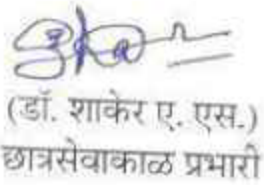 (डॉ. शाकेर ए. एस.)
छात्रसेवाकाळ प्रभारी